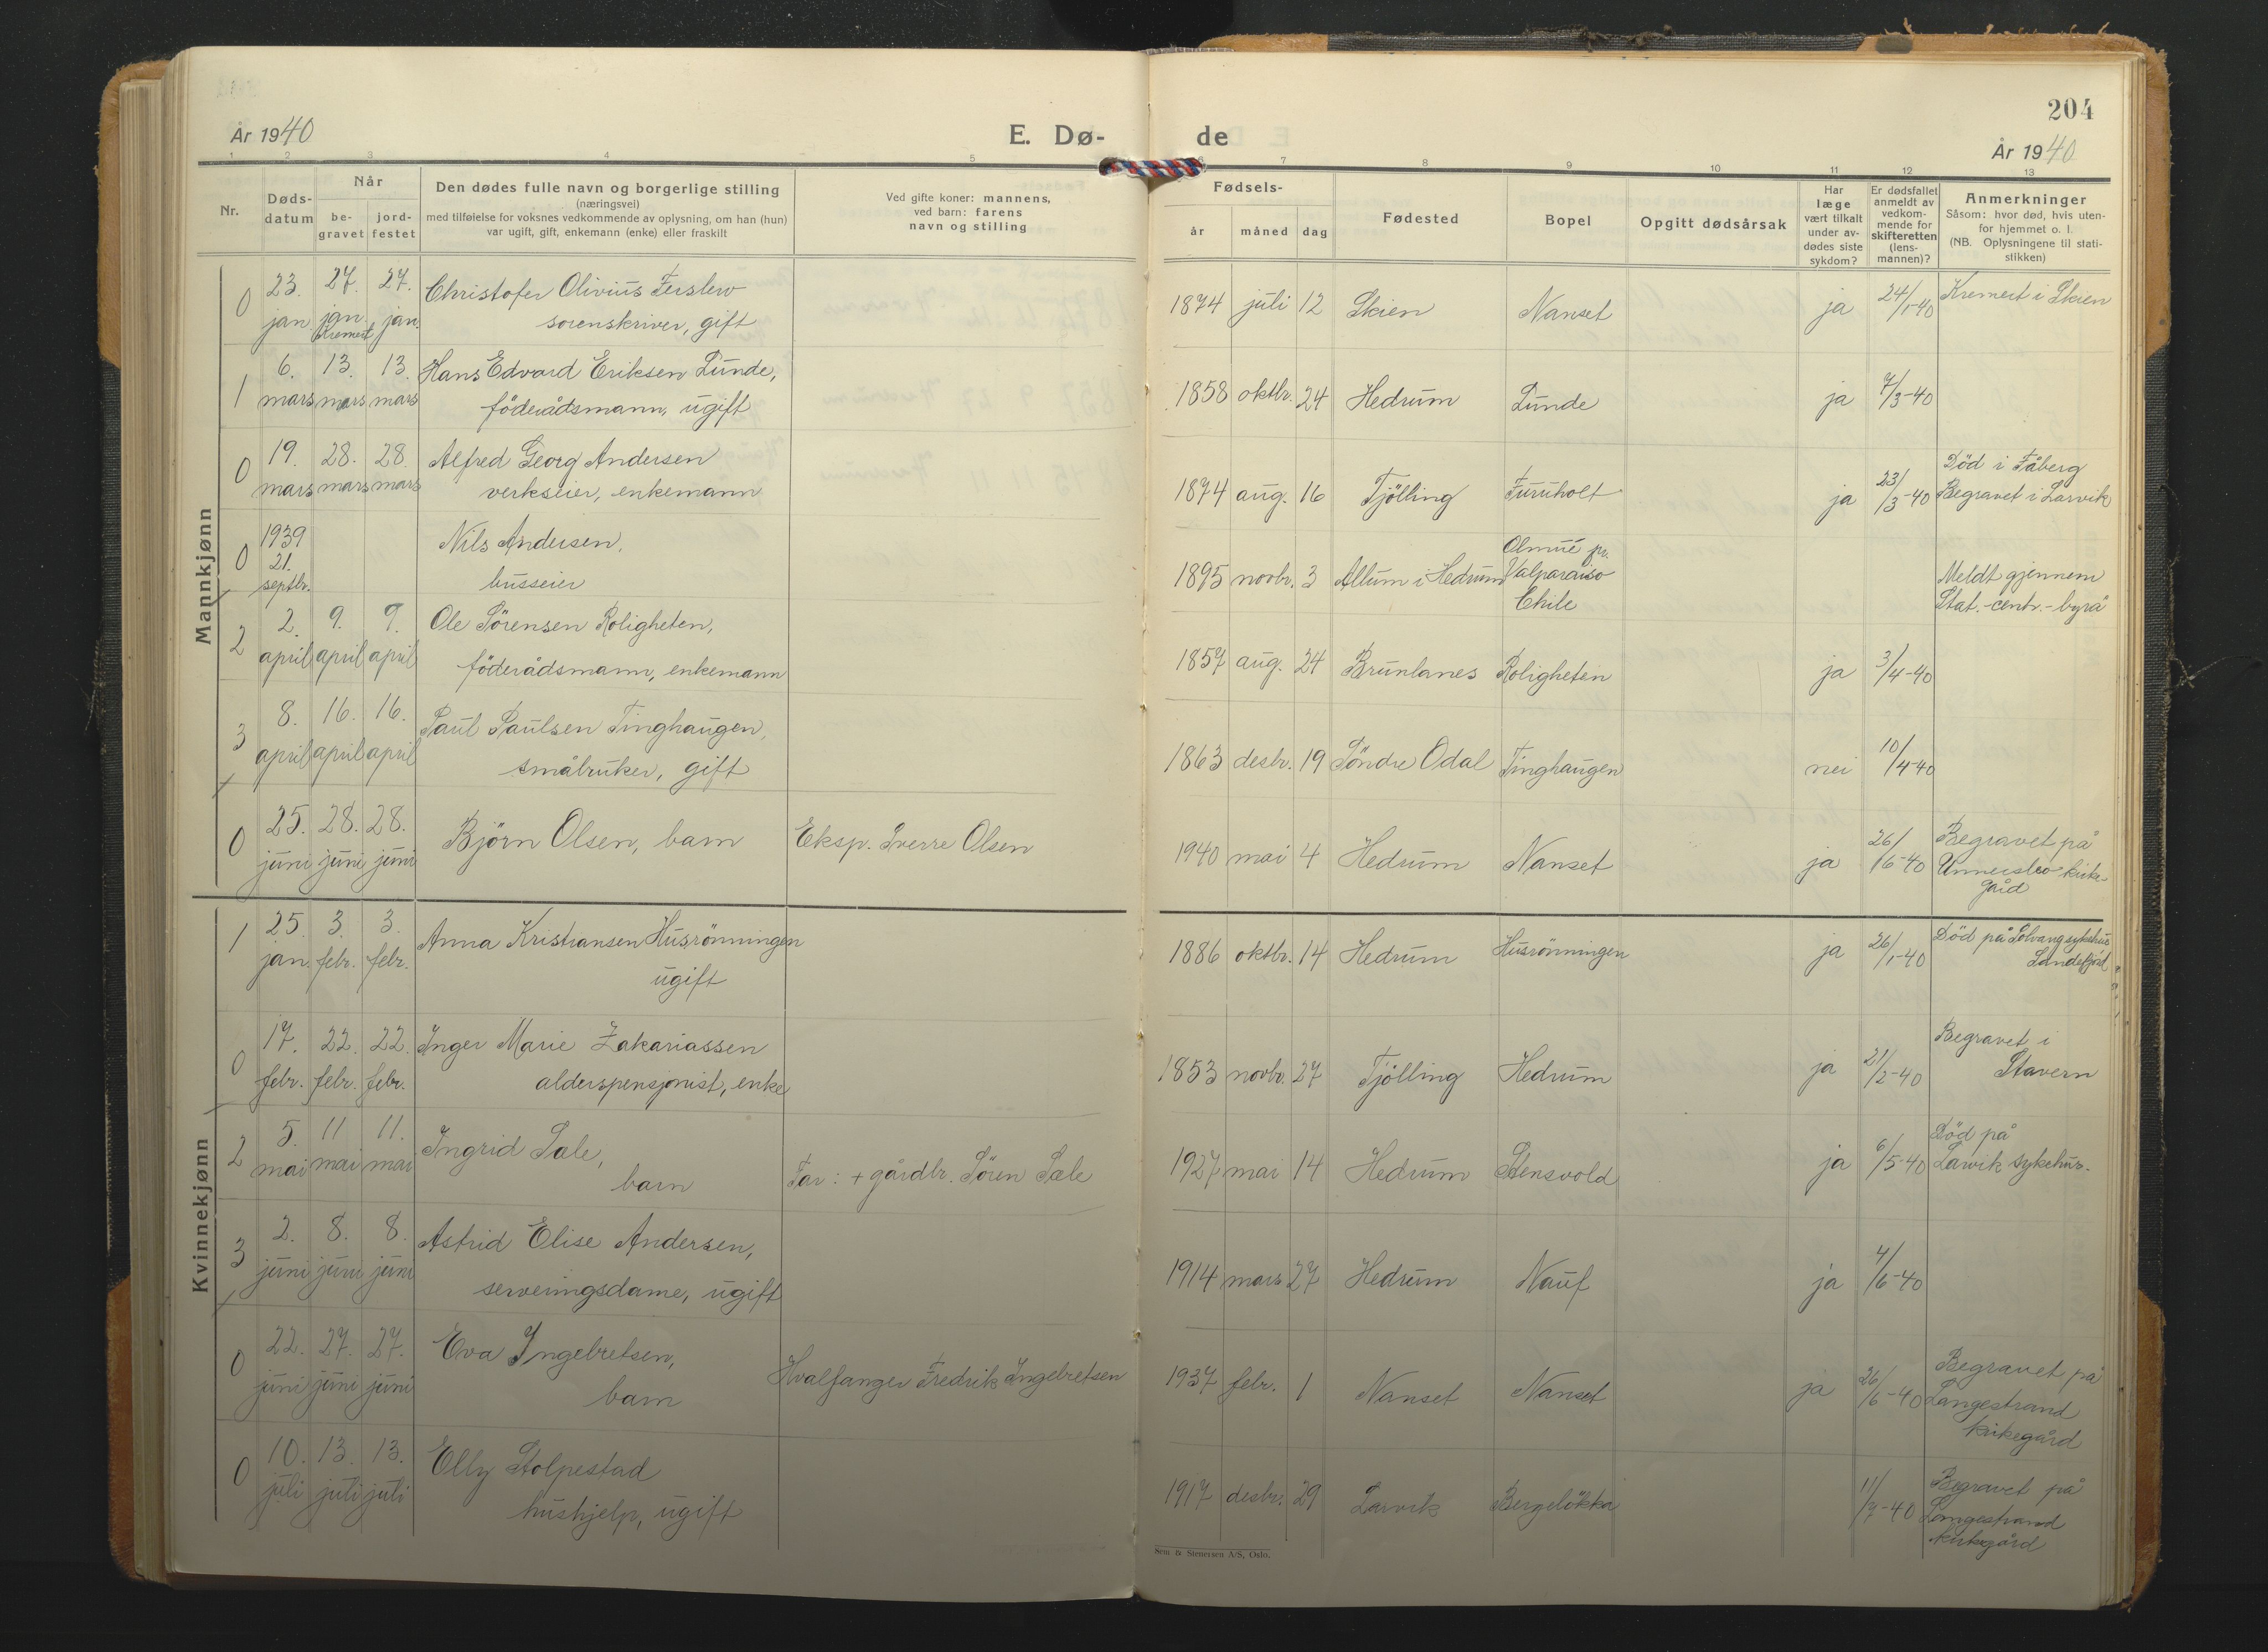 204
År 1940
E. Dø-
de
År 1940
1 2 3 4 5 6 7 8 9 10 11 12 13
Nr.
Døds-
datum
Når
be-
gravet
jord-
festet
Den dødes fulle navn og borgerlige stilling
(næringsvei)
med tilføielse for voksnes vedkommende av oplysning, om han (hun)
var ugift, gift, enkemann (enke) eller fraskilt
Ved gifte koner: mannens,
ved barn: farens
navn og stilling
Fødsels-
år måned dag
Fødested
Bopel
Opgitt dødsårsak
Har
læge
vært tilkalt
under av-
dødes siste
sykdom?
Er dødsfallet
anmeldt av
vedkom-
mende for
skifteretten
(lens-
mannen)?
Anmerkninger
Såsom: hvor død, hvis uten-
for hjemmet o. l.
(NB. Oplysningene til stati-
stikken)
Mannkjønn
0 23. 27. 27. Christofer Olivius Ferslew
jan. jan. jan. sorenskriver, gift
Kremert
1874 juli 12 Skien Nanset ja 24/1-40 Kremert i Skien
1 6. 13. 13. Hans Edvard Eriksen Lunde,
mars mars mars föderådsmann, ugift
1858 oktbr. 24 Hedrum Lunde ja 7/3-40
0 19. 28. 28. Alfred Georg Andersen
mars mars mars verkseier, enkemann
1874 aug. 16 Tjölling Furuholt ja 23/3-40 Död i Fåberg
Begravet i Larvik
0 1939
21.
septbr.
Nils Andersen,
busseier
1895 novbr. 3 Allum i Hedrum Olmué pr.
Valparaiso
Chile
Meldt gjennem
Stat.-centr.-byrå
2 2. 9. 9. Ole Sörensen Roligheten,
april april april föderådsmann, enkemann
1857 aug. 24 Brunlanes Roligheten ja 3/4-40
3 8. 16. 16. Paul Paulsen Tinghaugen,
april april april småbruker, gift
1863 desbr. 19 Söndre Odal Tinghaugen nei 10/4-40
0 25. 28. 28. Björn Olsen, barn Eksp. Sverre Olsen
juni juni juni
1940 mai 4 Hedrum Nanset ja 26/6-40 Begravet på
Undersbo kirke-
gård
Kvinnekjønn
1 25. 3. 3. Anna Kristiansen Husrönningen
jan. febr. febr. ugift
1886 oktbr. 14 Hedrum Husrönningen ja 26/1-40 Död på Solvang sykehus
Sandefjord
0 17. 22. 22. Inger Marie Zakariassen
febr. febr. febr. alderspensjonist, enke
1853 novbr. 27 Tjölling Hedrum ja 21/2-40 Begravet i
Stavern
2 5. 11 11. Ingrid Sale,
mai mai mai barn Far: + gårdbr. Sören Sale
1927 mai 14 Hedrum Stensvold ja 6/5-40 Död på
Larvik sykehus.
3 2. 8. 8. Astrid Elise Andersen,
juni juni juni serveringsdame, ugift
1914 mars 27 Hedrum Nauf ja 4/6-40
0 22. 27. 27. Eva Ingebretsen,
juni juni juni barn Hvalfanger Fredrik Ingebretsen
1937 febr. 1 Nanset Nanset ja 26/6-40 Begravet på
Langestrand
kirkegård
0 10. 13. 13. Elly Stolpestad
juli juli juli hushjelp, ugift
1917 desbr. 29 Larvik Bergelökka 11/7-40 Begravet på
Langestrand
kirkegård
Sem & Stenersen A/S, Oslo.